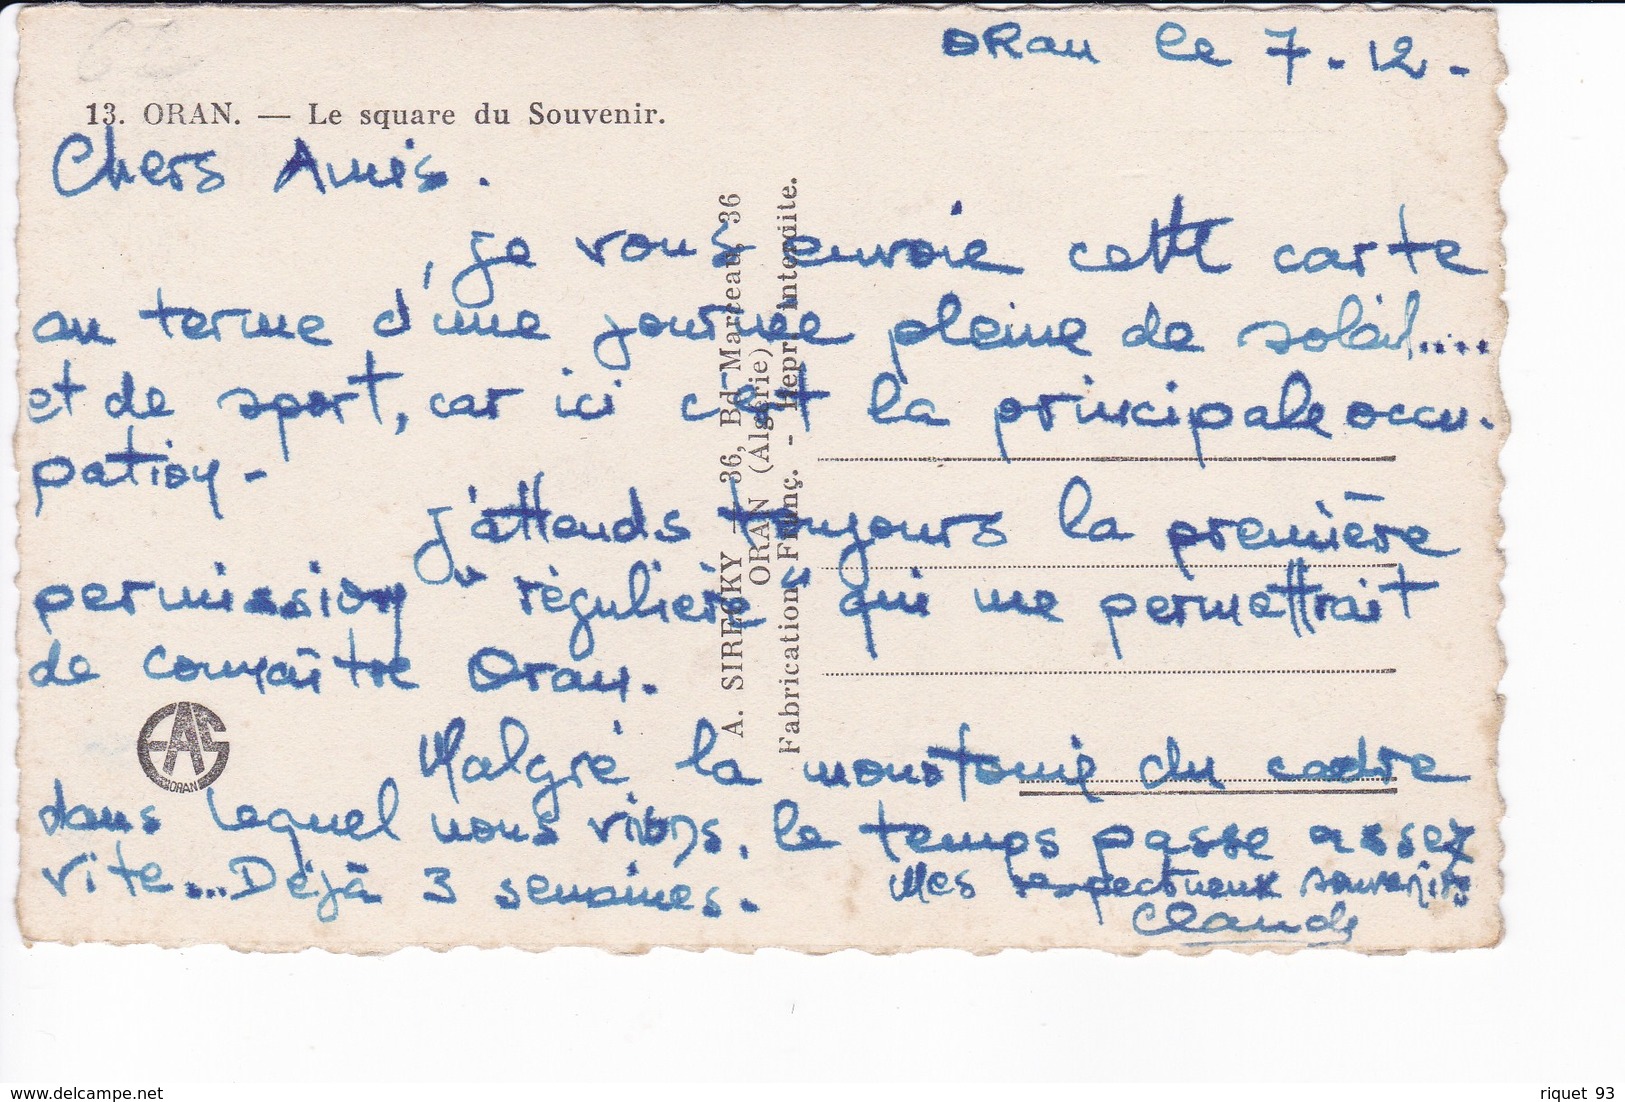 ORan le 7.12.
13. ORAN. — Le square du Souvenir.
Chers Amis.
je vous envoie cette carte
au terme d'une journée pleine de soleil....
et de sport, car ici c'est la principale occu-
pation -
j'attends toujours la première
permission "régulière" qui me permettrait
de connaître Oran.
Malgré la monotonie du cadre
dans lequel nous vivons, le temps passe assez
vite... Déjà 3 semaines.
Mes respectueux souvenirs
Claude
A. SIRECKY — 36, Bd Marceau, 36
ORAN (Algérie)
Fabrication Franç. - Repr. interdite.
EAS
ORAN
delcampe.net
riquet 93